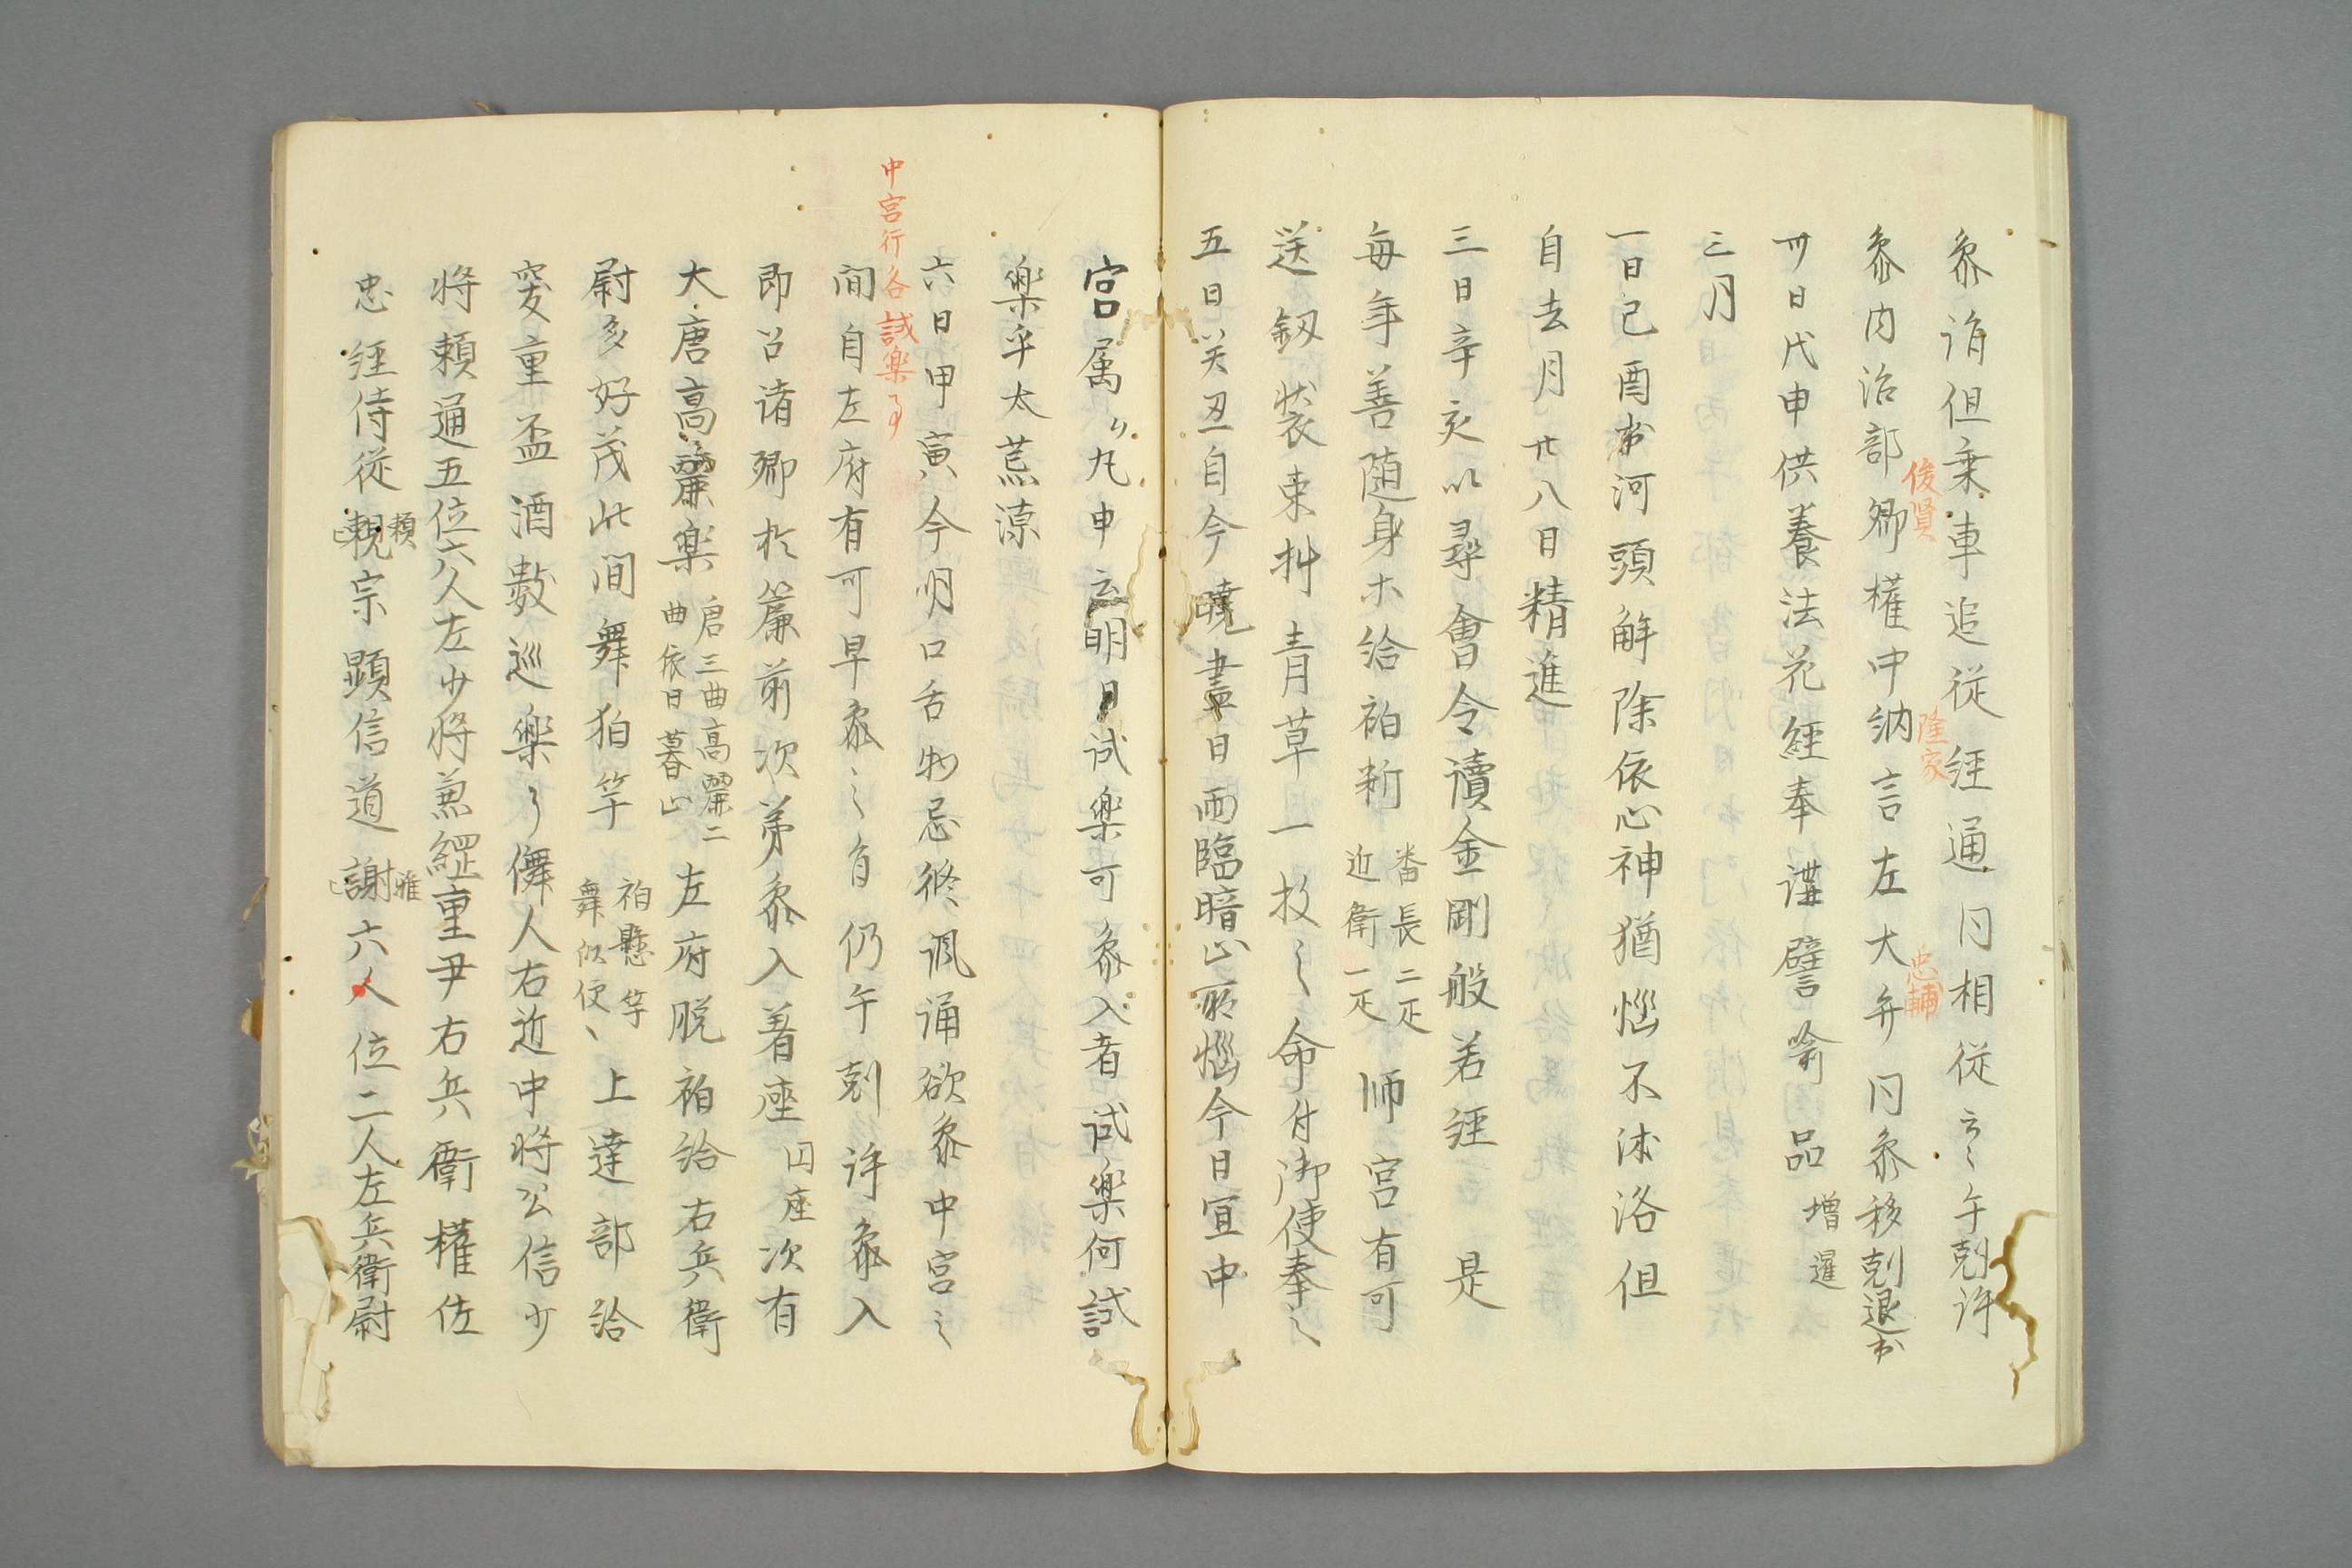 参詣但乗車追従経通同相従云々午剋許
参内治部卿権中納言左大弁同参移剋退出
俊賢
隆家
忠輔
卅日戊申供養法花経奉講譬喩品増暹
三月
一日己酉出河頭解除依心神猶悩不沐浴但
自去月廿八日精進
三日辛亥以尋會令讀金剛般若経 是
毎年善随身等給袙新番長二疋近衛一疋師宮有可
送釼装束抖青草一枚之命付御使奉之
五日癸丑自今曉盡日雨臨暗止所悩今日宜中
宮属々九申云明日試楽可参入者試楽何試
楽乎太荒涼
六日甲寅今明口舌物忌終諷誦欲参中宮之
中宮行各試楽事
間自左府有可早参之旨仍午剋許参入
即召諸卿於簾前次第参入着座円座次有
大唐高麗楽唐三曲高麗二曲依日暮止左府脱袙給右兵衛
尉多好茂此間舞狛竿袙懸竿舞似便、上達部給
突重盃酒數巡楽了儛人右近中将公信少
将頼通五位六人左少将兼綱重尹右兵衛権佐
忠経侍従親宗顕信道謝六人位二人左兵衛尉
頼
雅